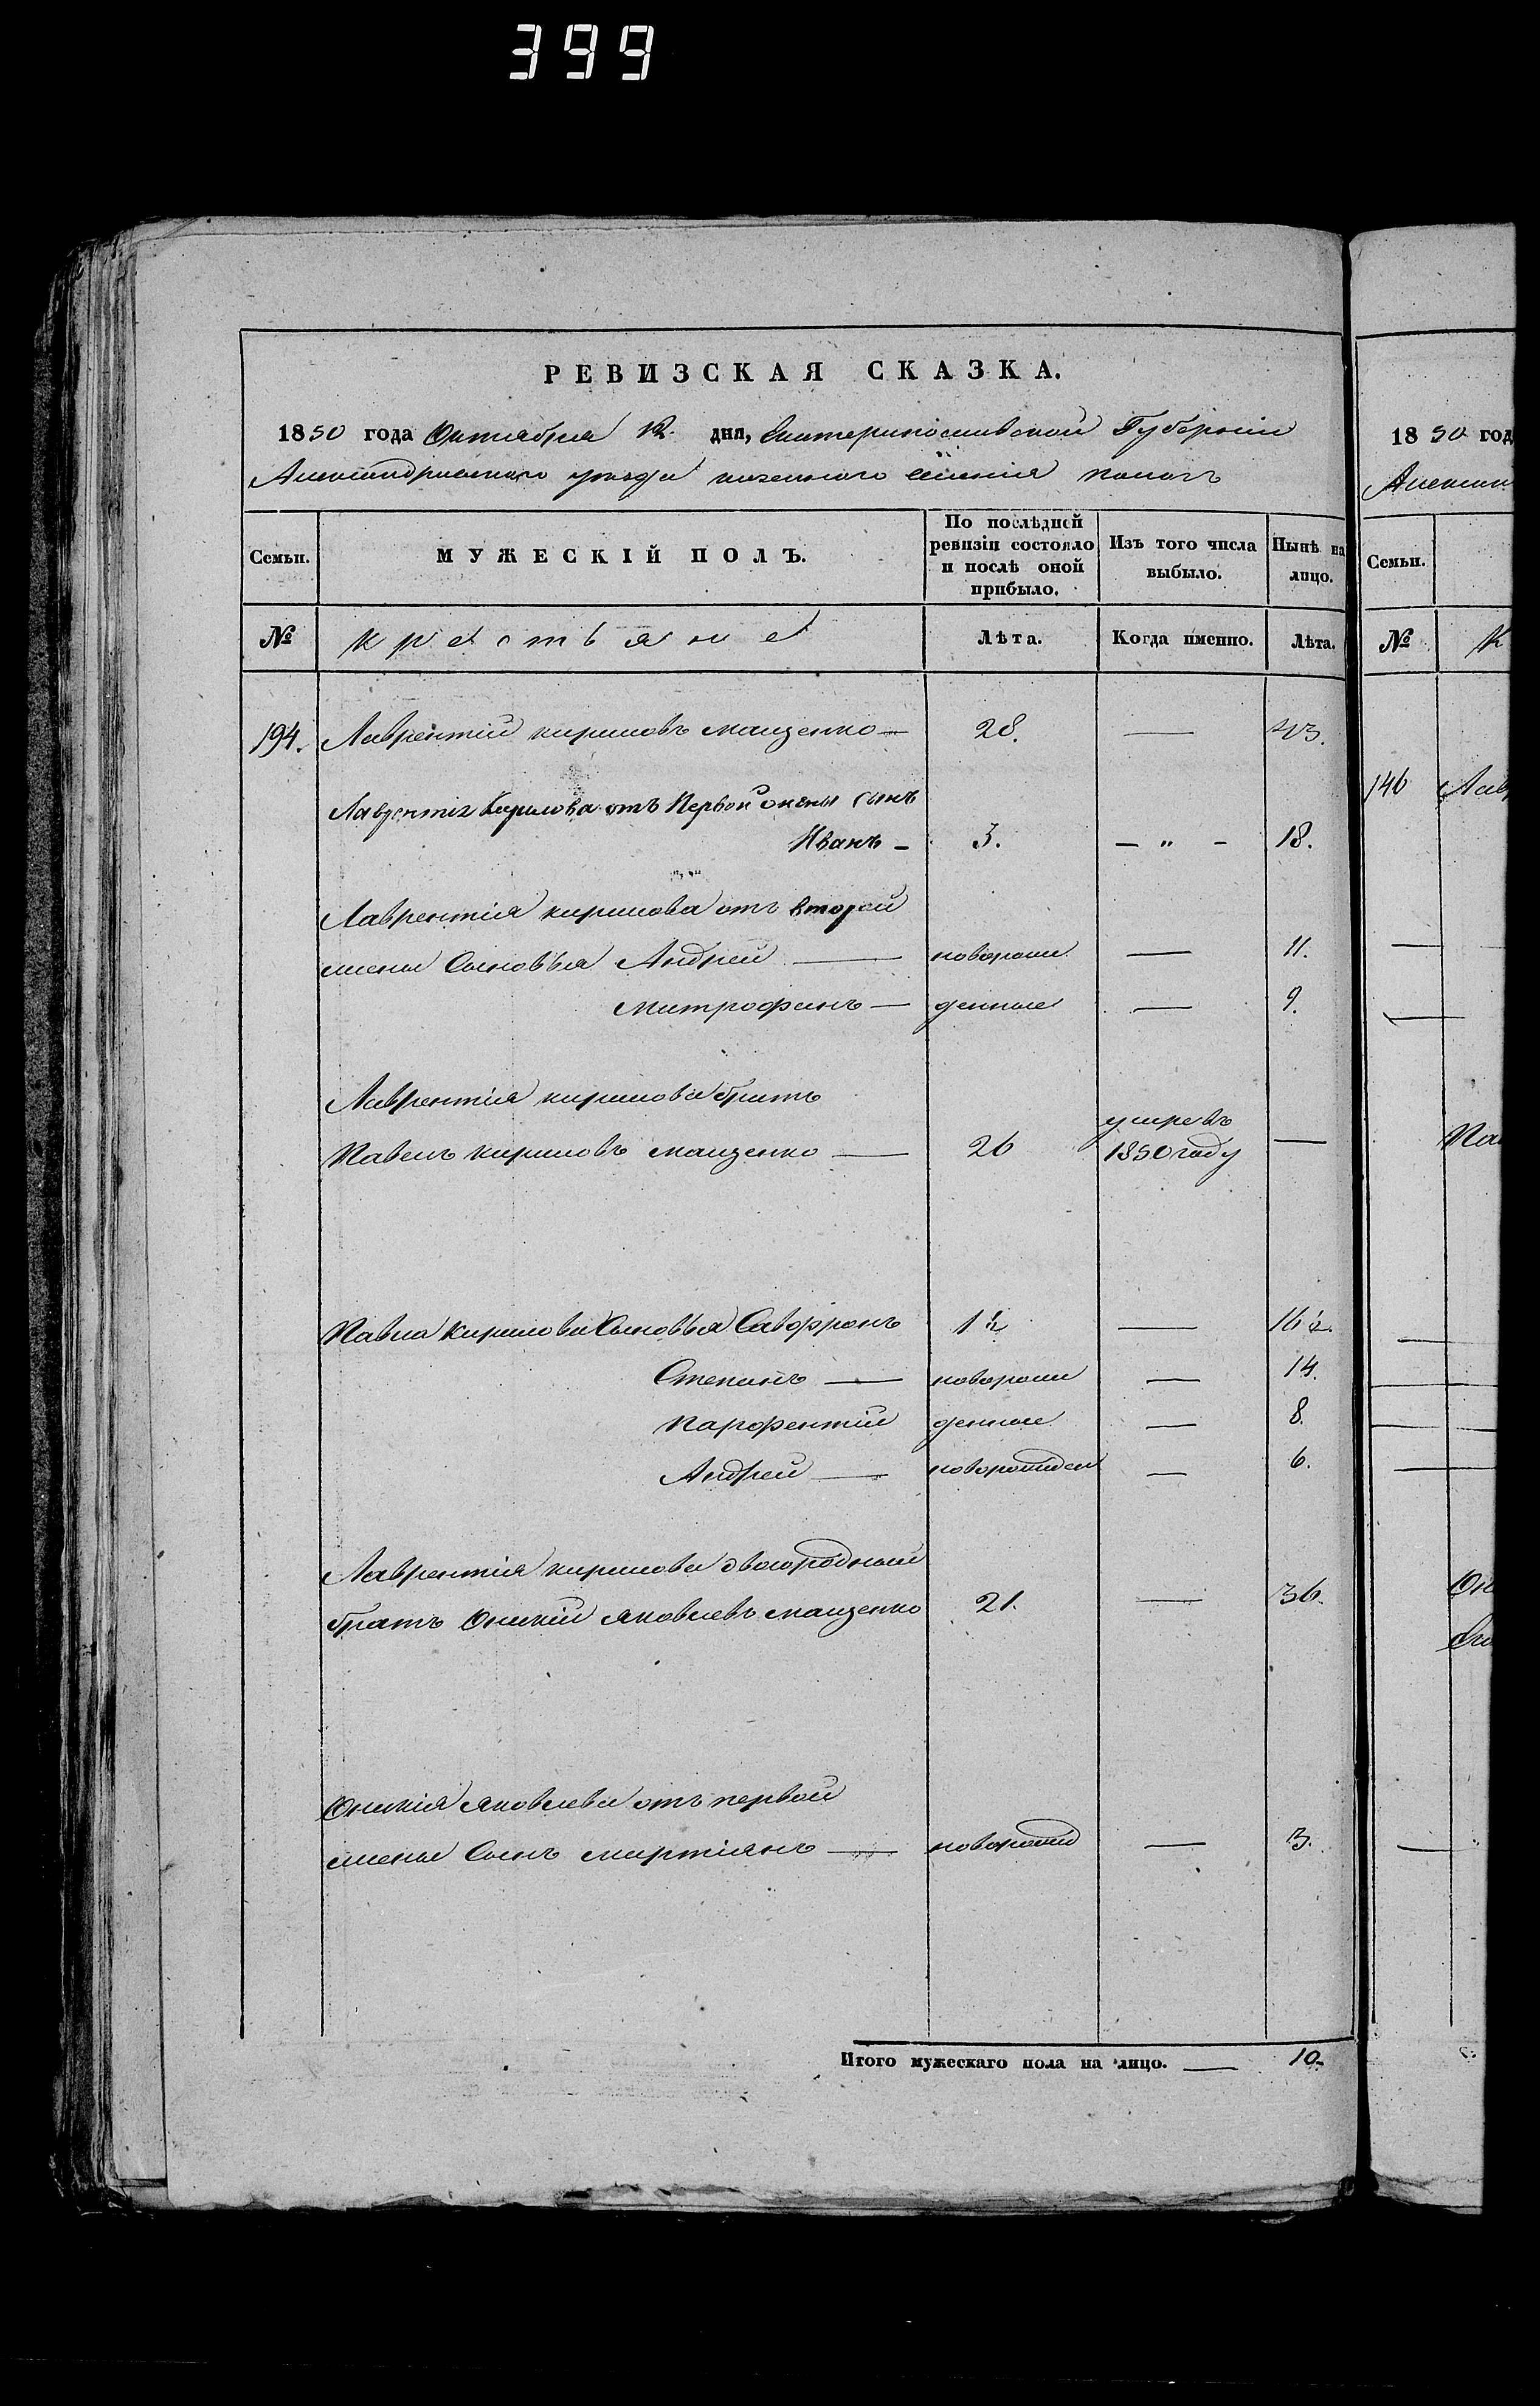 399
РЕВИЗСКАЯ СКАЗКА.
1850 года Октября 12. дня, Екатеринославской Губернии
Александровскаго уезда казенного селения
Семьи.
МУЖЕСКІЙ ПОЛЪ.
По послѣдней ревизіи состояло и послѣ оной прибыло.
Изъ того числа выбыло.
Нынѣ на лицо.
№
крестьяне
Лѣта.
Когда именно.
Лѣта.
194. Лаврентій кириловъ мащенко — 28. — 43.
Лаврентія Кирилова отъ Первой жены сынъ
Иванъ - 3. - " - 18.
Лаврентія кирилова отъ второй
жены Сыновья Андрей — новорож — 11.
митрофанъ — денные — 9.
Лаврентія кирилова братъ
Павелъ кириловъ мащенко — 26 умре въ 1850 году —
Павла кирилова Сыновья Савфронъ 1½ — 16½.
Степанъ — новорож — 14.
Парфентій денные — 8.
Андрей — новорожден — 6.
Лаврентія кирилова двоюродный
братъ Оникій яковлевъ мащенко 21. — 36.
Оникія яковлева отъ первой
жены Сынъ мартіянъ — новорожд — 3.
Итого мужескаго пола на лицо. — 10.
18 50 год
Семьи.
№
К
146 Лав